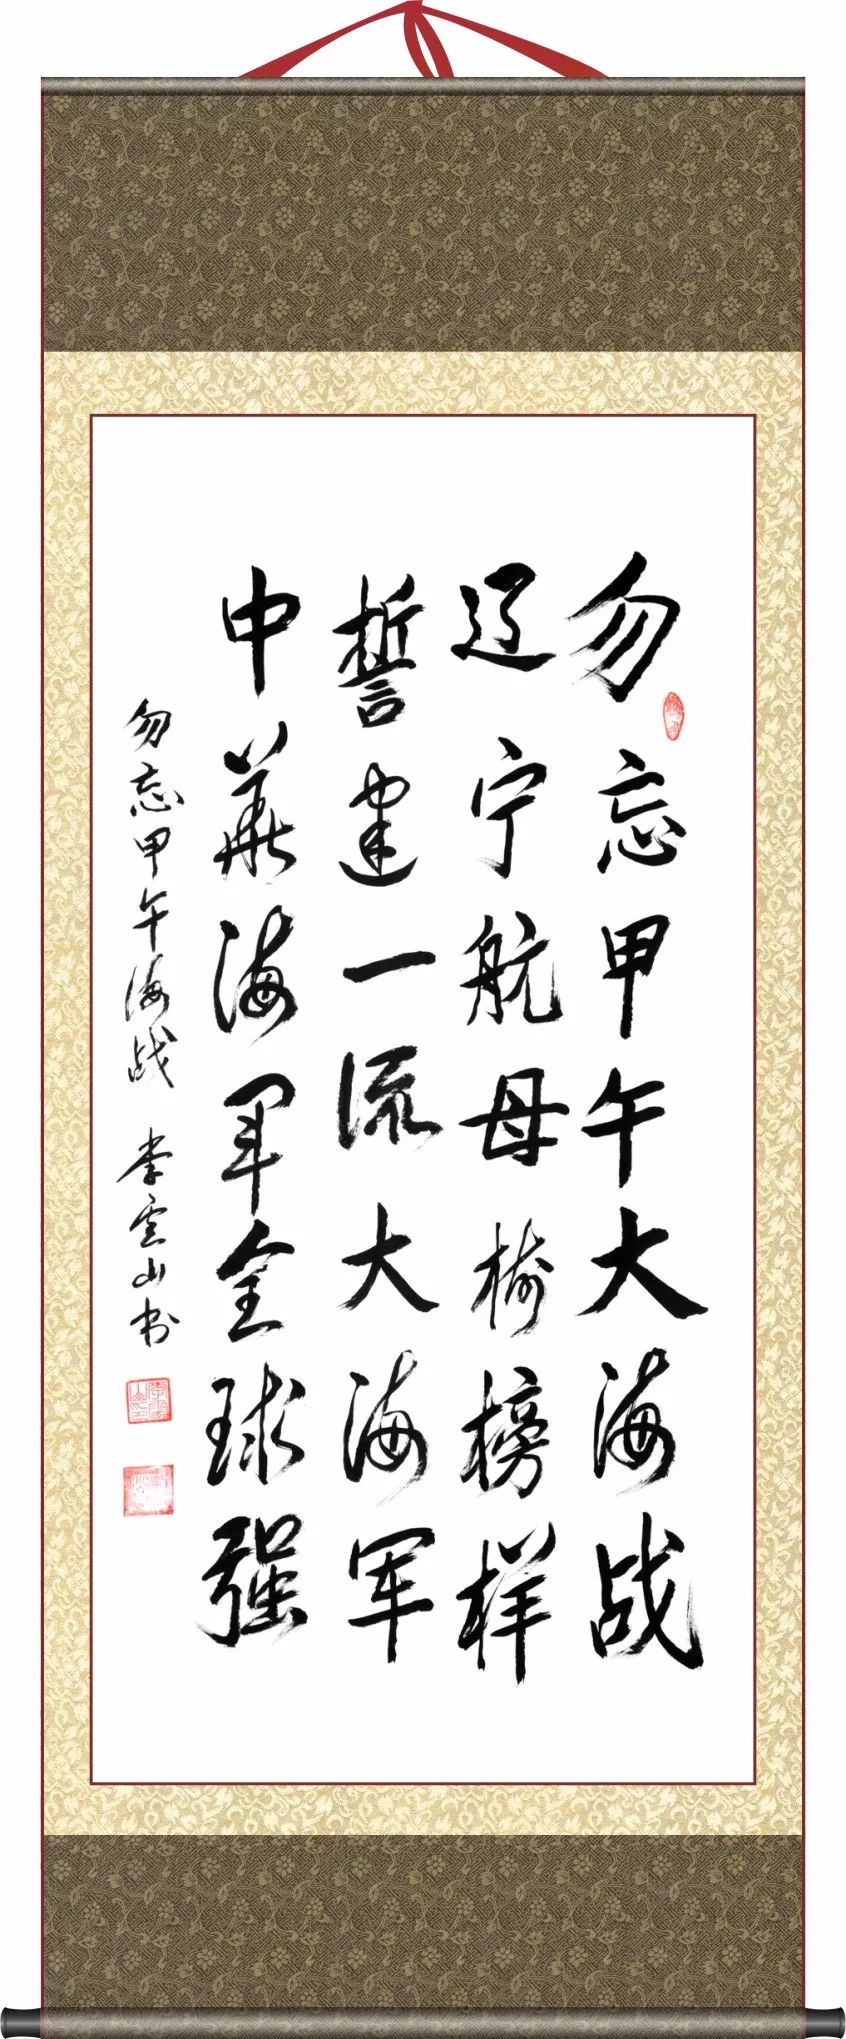 勿忘甲午大海战
辽宁航母榜样
誓建一流大海军
中華海军全球强
勿忘甲午海战 李雲山书